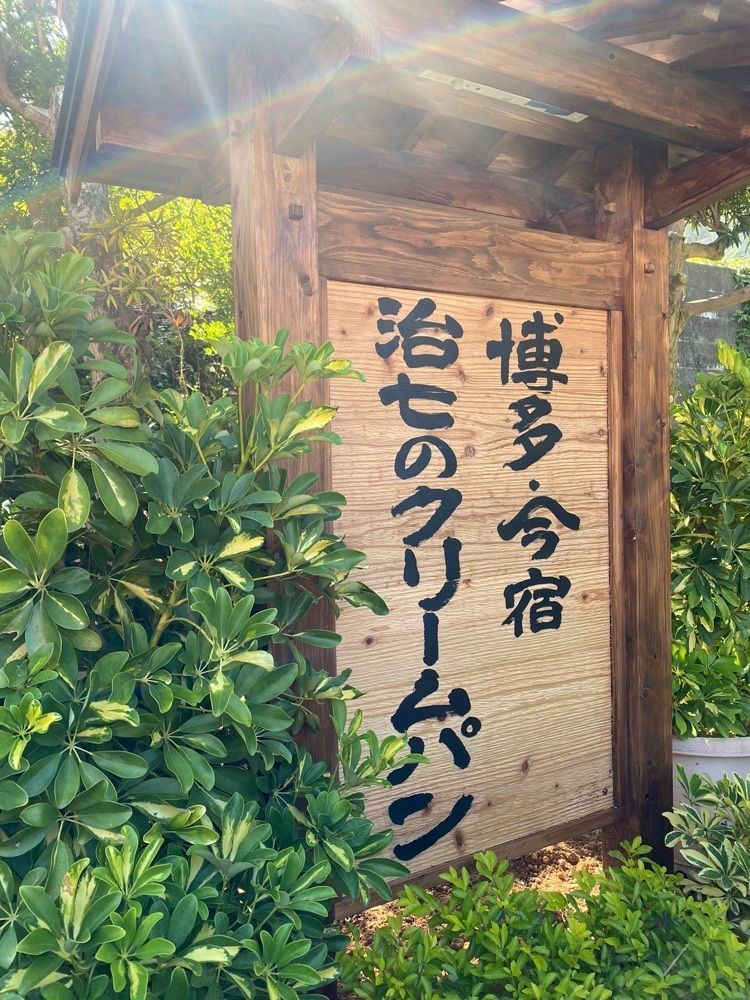 博多・今宿
治七のクリームパン